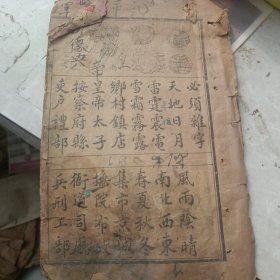 必須雜字
天地日月
雷霆震電
雪霜霧露
鄉村鎮店
皇帝太子
按察府縣
吏戶禮部
風雨陰晴
南北西東
春夏秋冬
集市京城
撫院布政
衙道司廳
兵刑工部